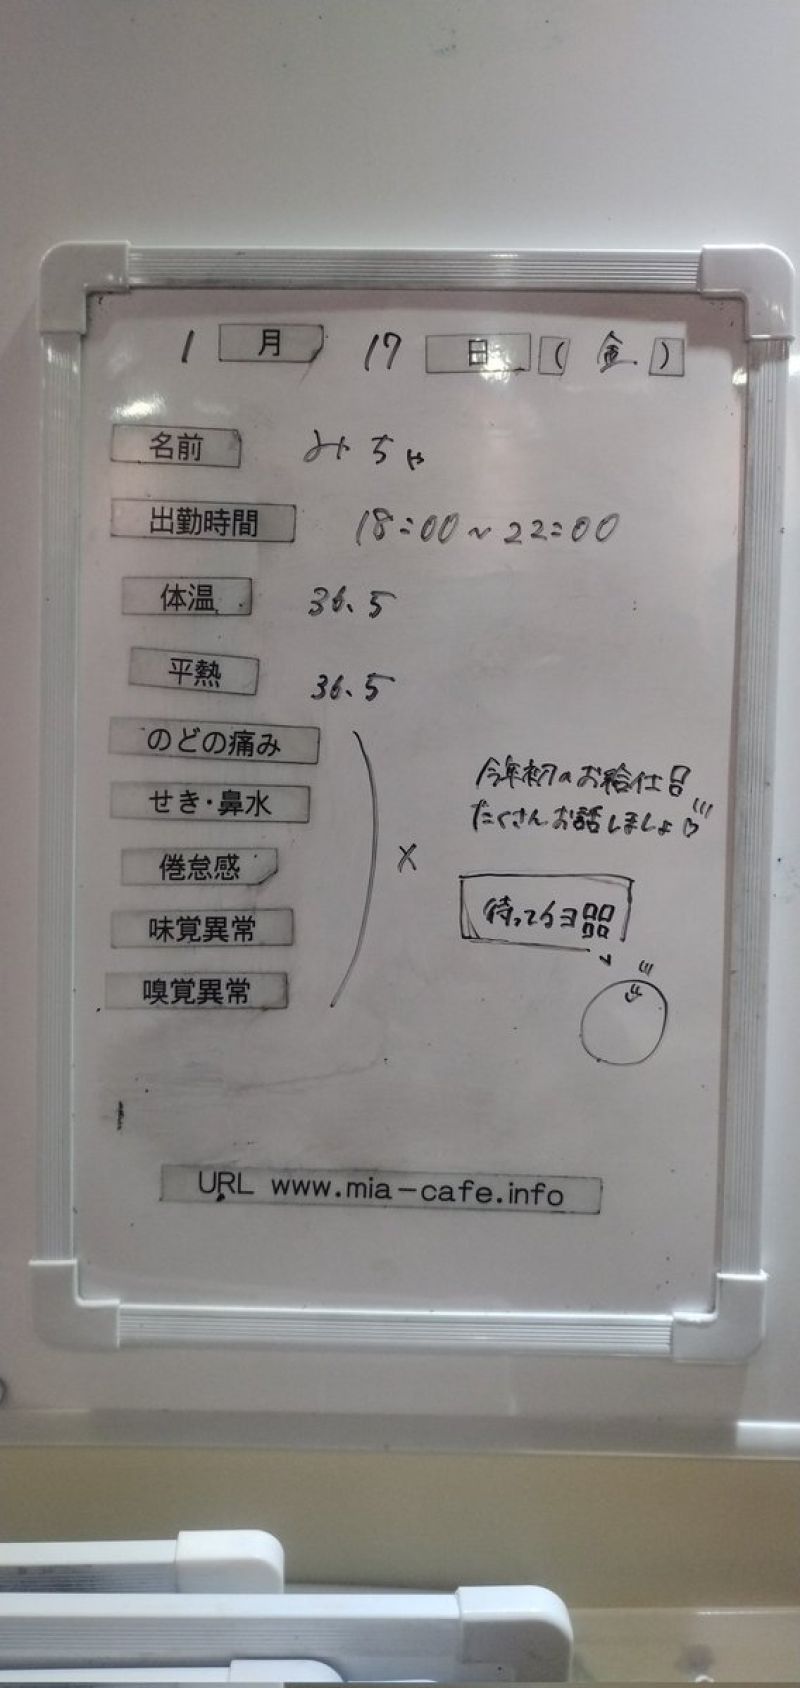 1月17日(金)
名前 みちゃ
出勤時間 18:00~22:00
体温 36.5
平熱 36.5
のどの痛み
せき・鼻水
倦怠感
味覚異常
嗅覚異常
×
今年初のお給仕
たくさんお話しましょ
待って
URL www.mia-cafe.info